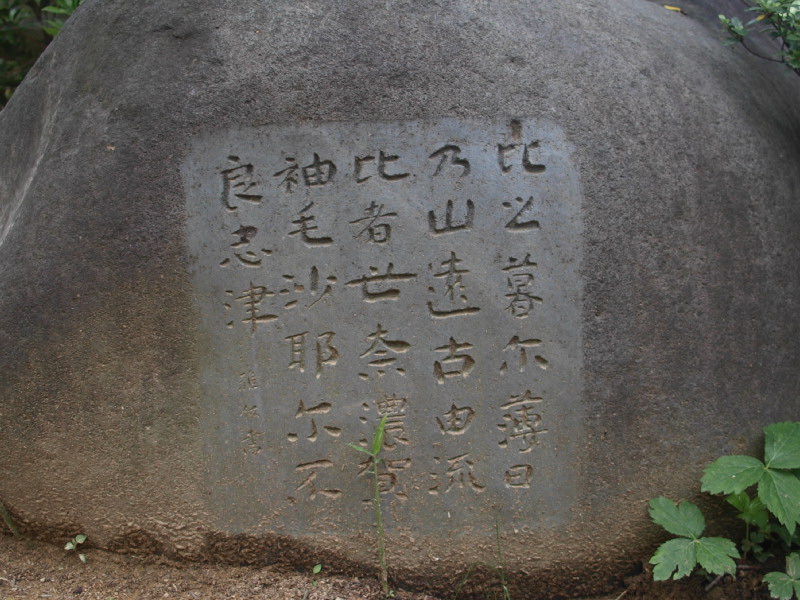 比之暮尓薄日
乃山遠古由流
比者世奈濃賀
袖毛沙耶尓不
良志津